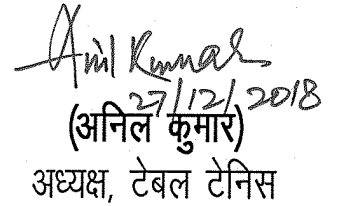 Anil Kumar
27/12/2018
(अनिल कुमार)
अध्यक्ष, टेबल टेनिस